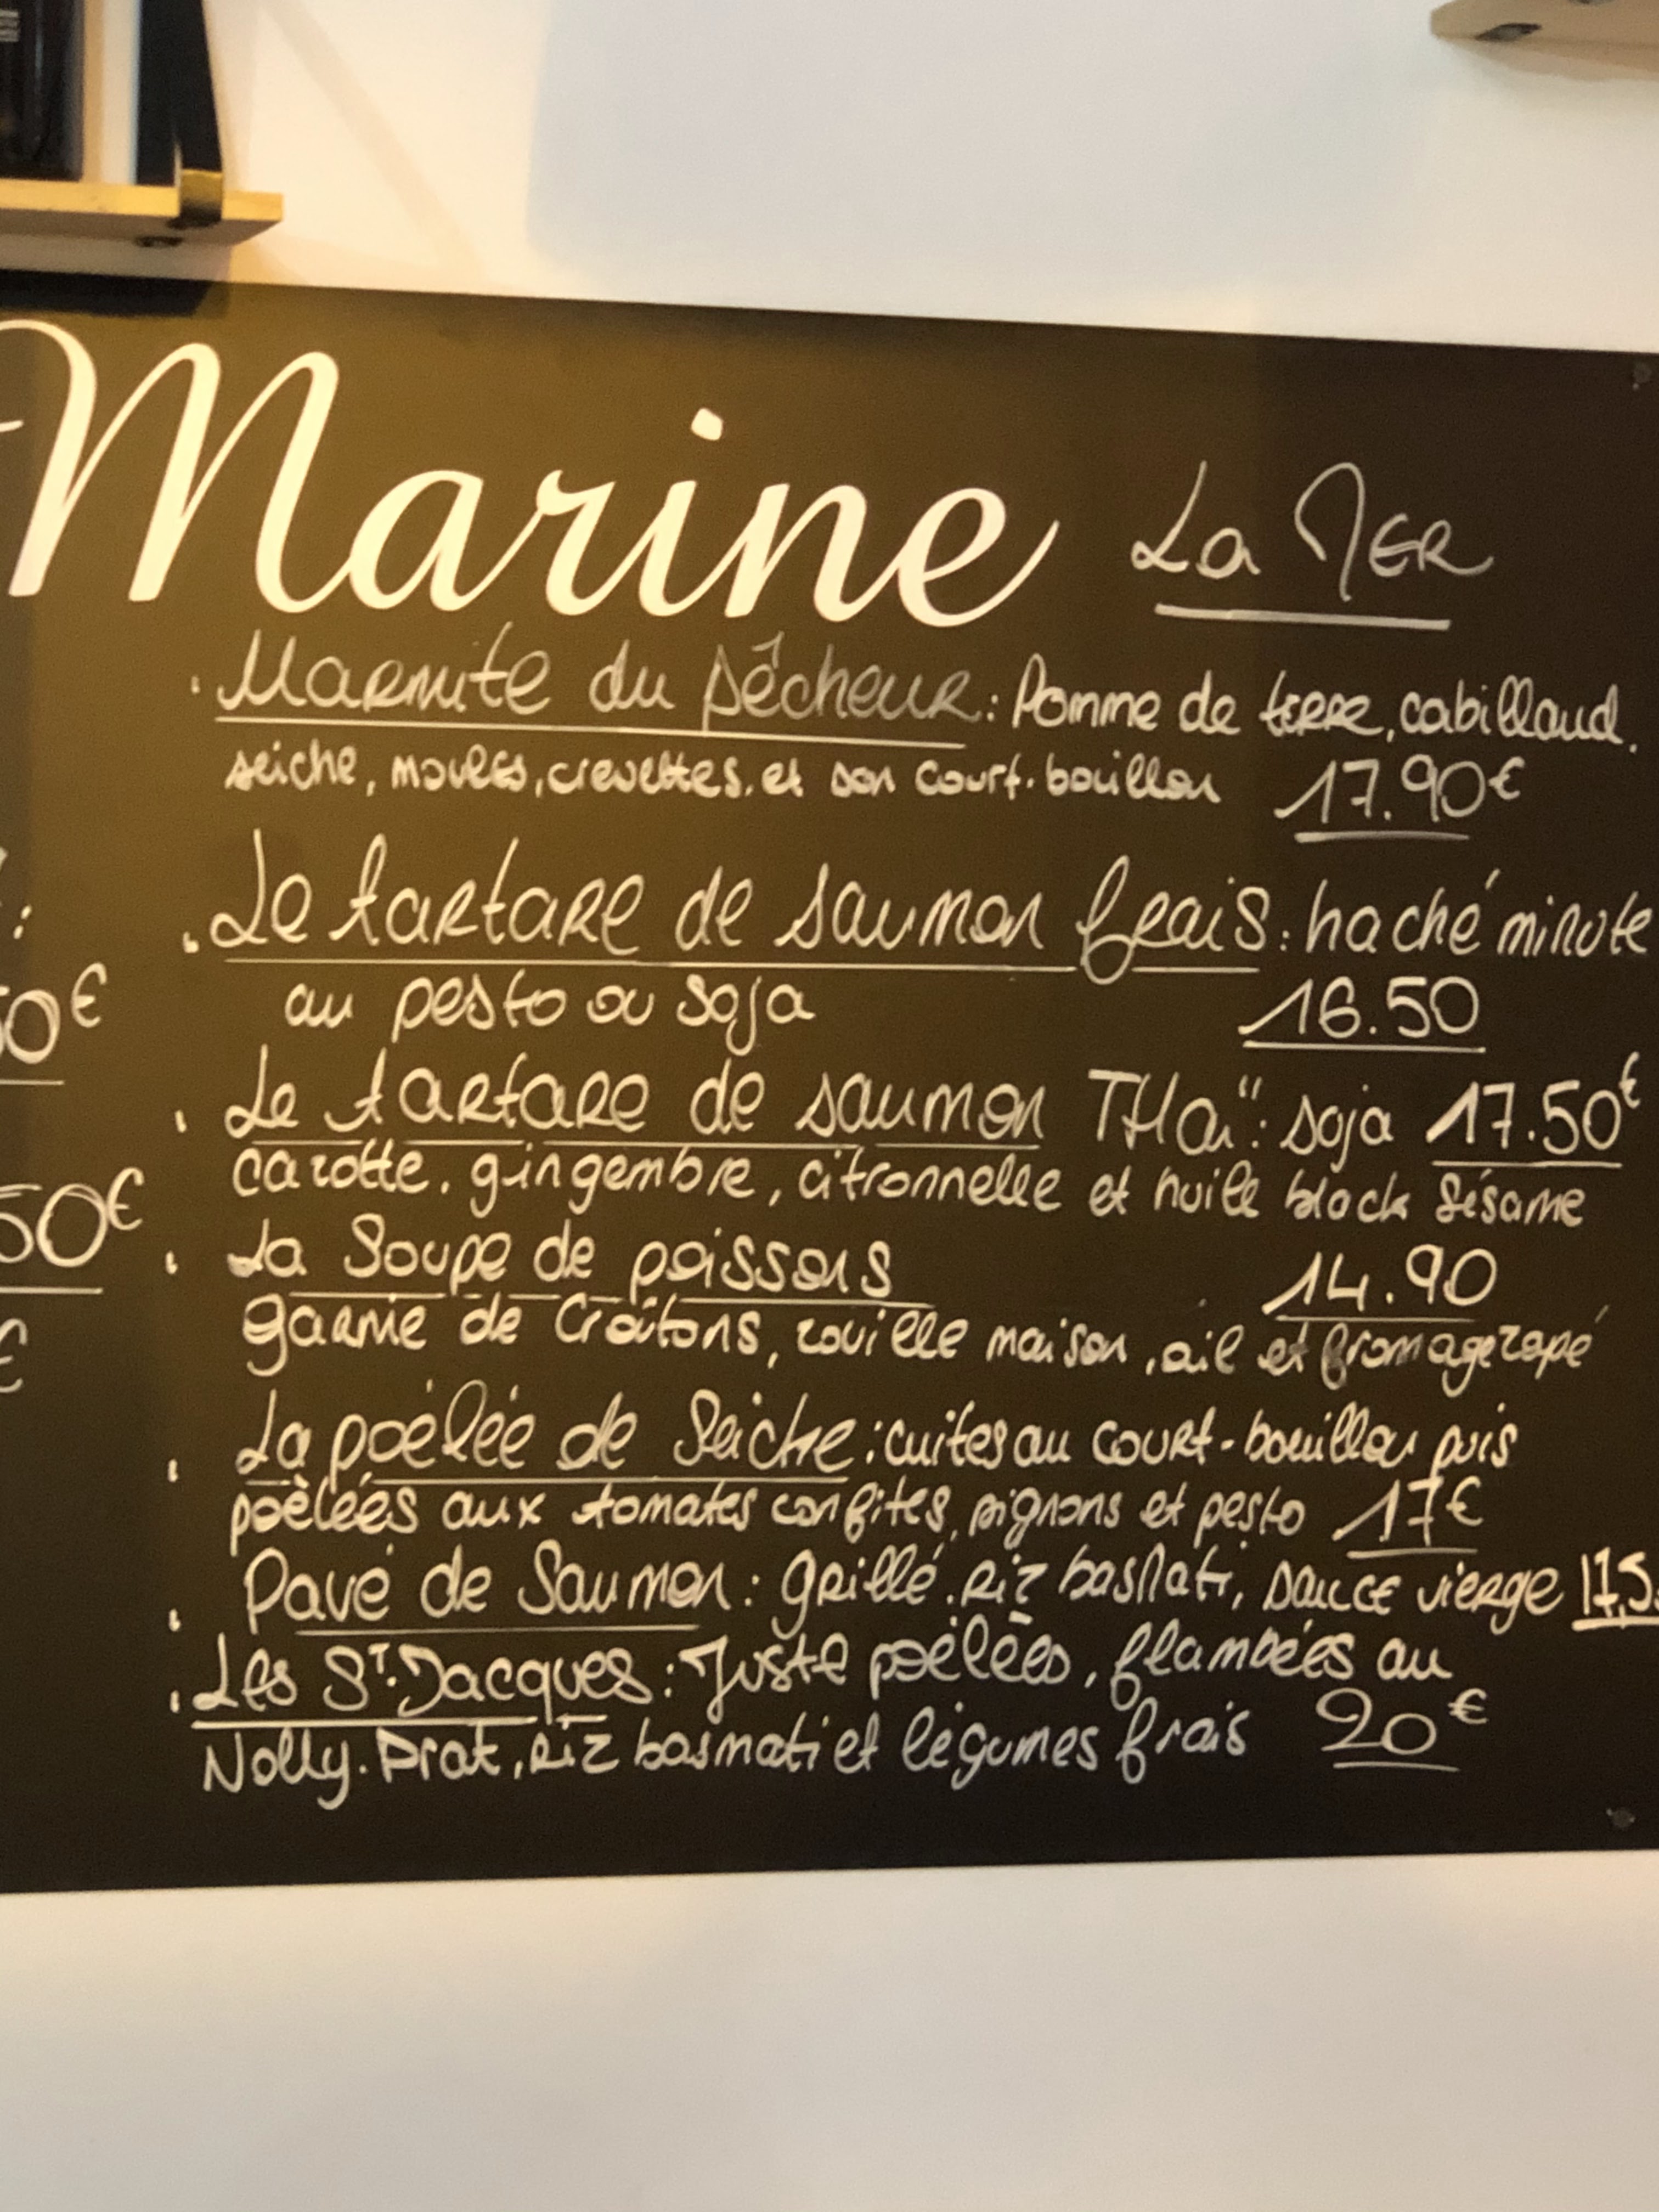 Marine La MER
. Marmite du pêcheur : Pomme de terre, cabillaud,
seiche, moules, crevettes, et son court-bouillon 17.90€
. Le tartare de saumon frais : haché minute
:
au pesto ou soja 16.50
0€
. Le tartare de saumon THaï : soja 17.50€
carotte, gingembre, citronnelle et huile black sésame
50€
. La Soupe de poissons 14.90
garnie de Croûtons, rouille maison, ail et fromage rapé
€
. La poêlée de Seiche : cuites au court-bouillon puis
poêlées aux tomates confites, pignons et pesto 17€
. Pavé de Saumon : grillé, riz basmati, sauce vierge 17,5
. Les St. Jacques : Juste poêlées, flambées au
Nolly-Prat, riz basmati et légumes frais 20€